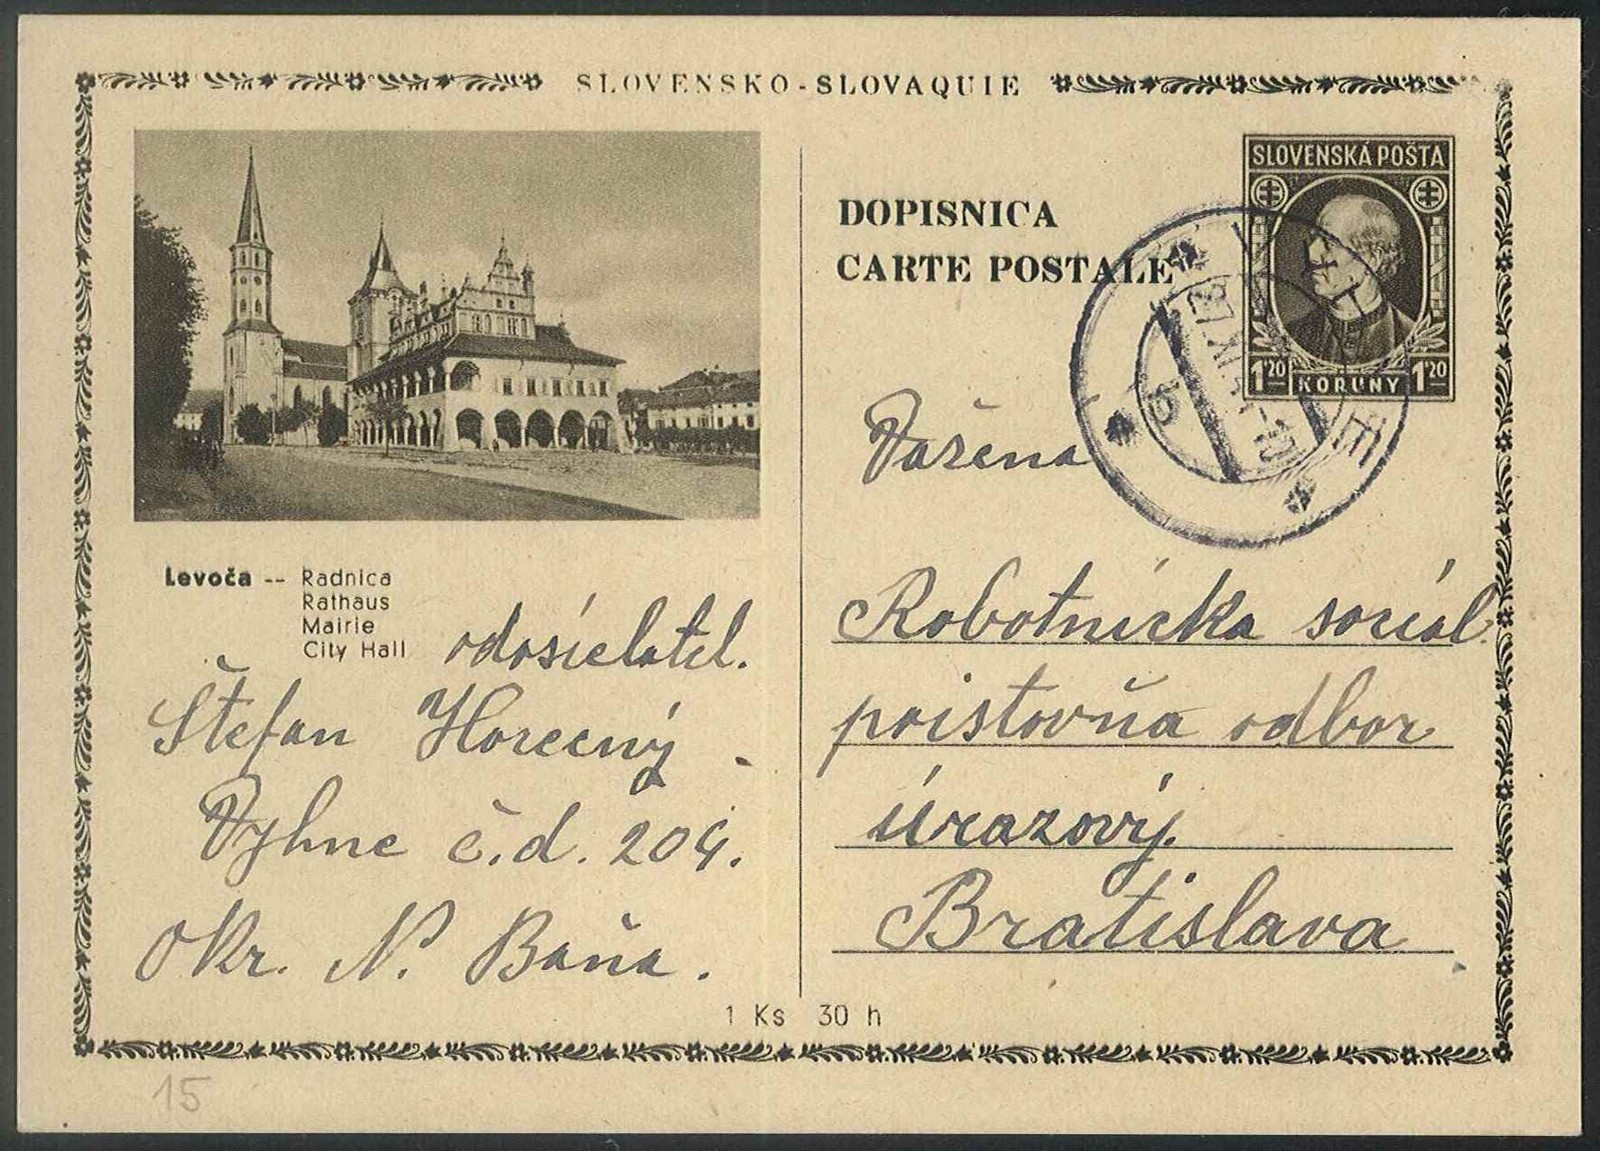 SLOVENSKO - SLOVAQUIE
SLOVENSKÁ POŠTA
1'20 KORUNY 1'20
DOPISNICA
CARTE POSTALE
Levoča -- Radnica
Rathaus
Mairie
City Hall
odosielatel.
Štefan Horecný
Vyhne č.d. 204.
Okr. N. Baňa.
Važena
Robotnícka sociál.
poistovňa odbor
úrazový.
Bratislava
1 Ks 30 h
15